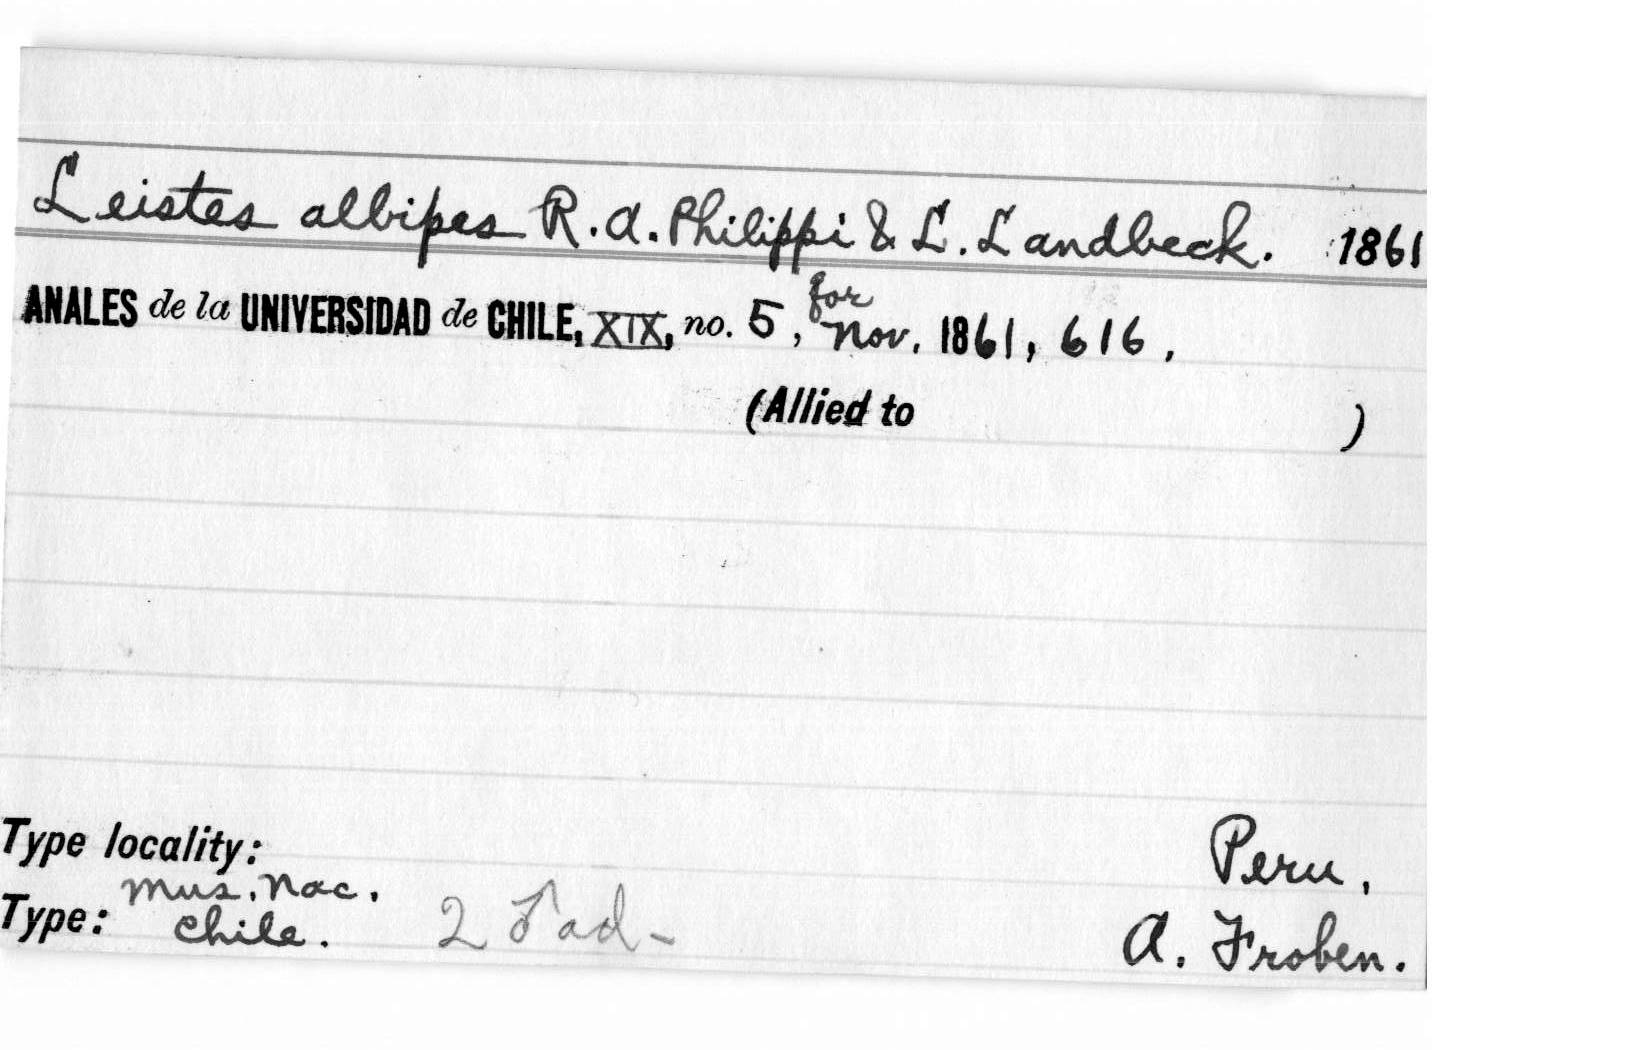 Leistes albipes R. A. Philippi & L. Landbeck. 1861
ANALES de la UNIVERSIDAD de CHILE, XIX, no. 5, for Nov. 1861, 616.
(Allied to )
Type locality: Peru,
Type: Mus. Nac. Chile. 2 ad- A. Froben.